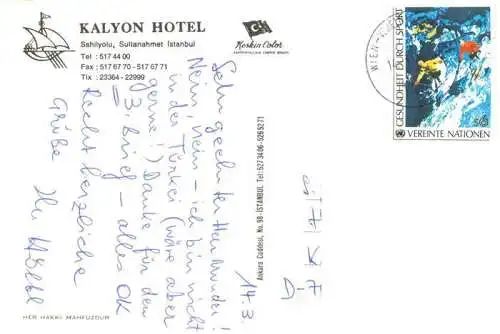 KALYON HOTEL
Sahilyolu, Sultanahmet İstanbul
Tel : 517 44 00
Fax : 517 67 70 - 517 67 71
Tlx : 23364 - 22999
Keskin Color
Sehr geehrter Herr
Nein, nein - ich bin nicht
in der Türkei (wäre aber
gerne!) Danke für den
3. Brief - alles OK
Recht herzliche
Grüße Ihr
14.3.
Ankara Caddesi, No. 98 - İSTANBUL, Tel: 5273406-5265271
HER HAKKI MAHFUZDUR
WIEN
GESUNDHEIT DURCH SPORT
S 6
VEREINTE NATIONEN